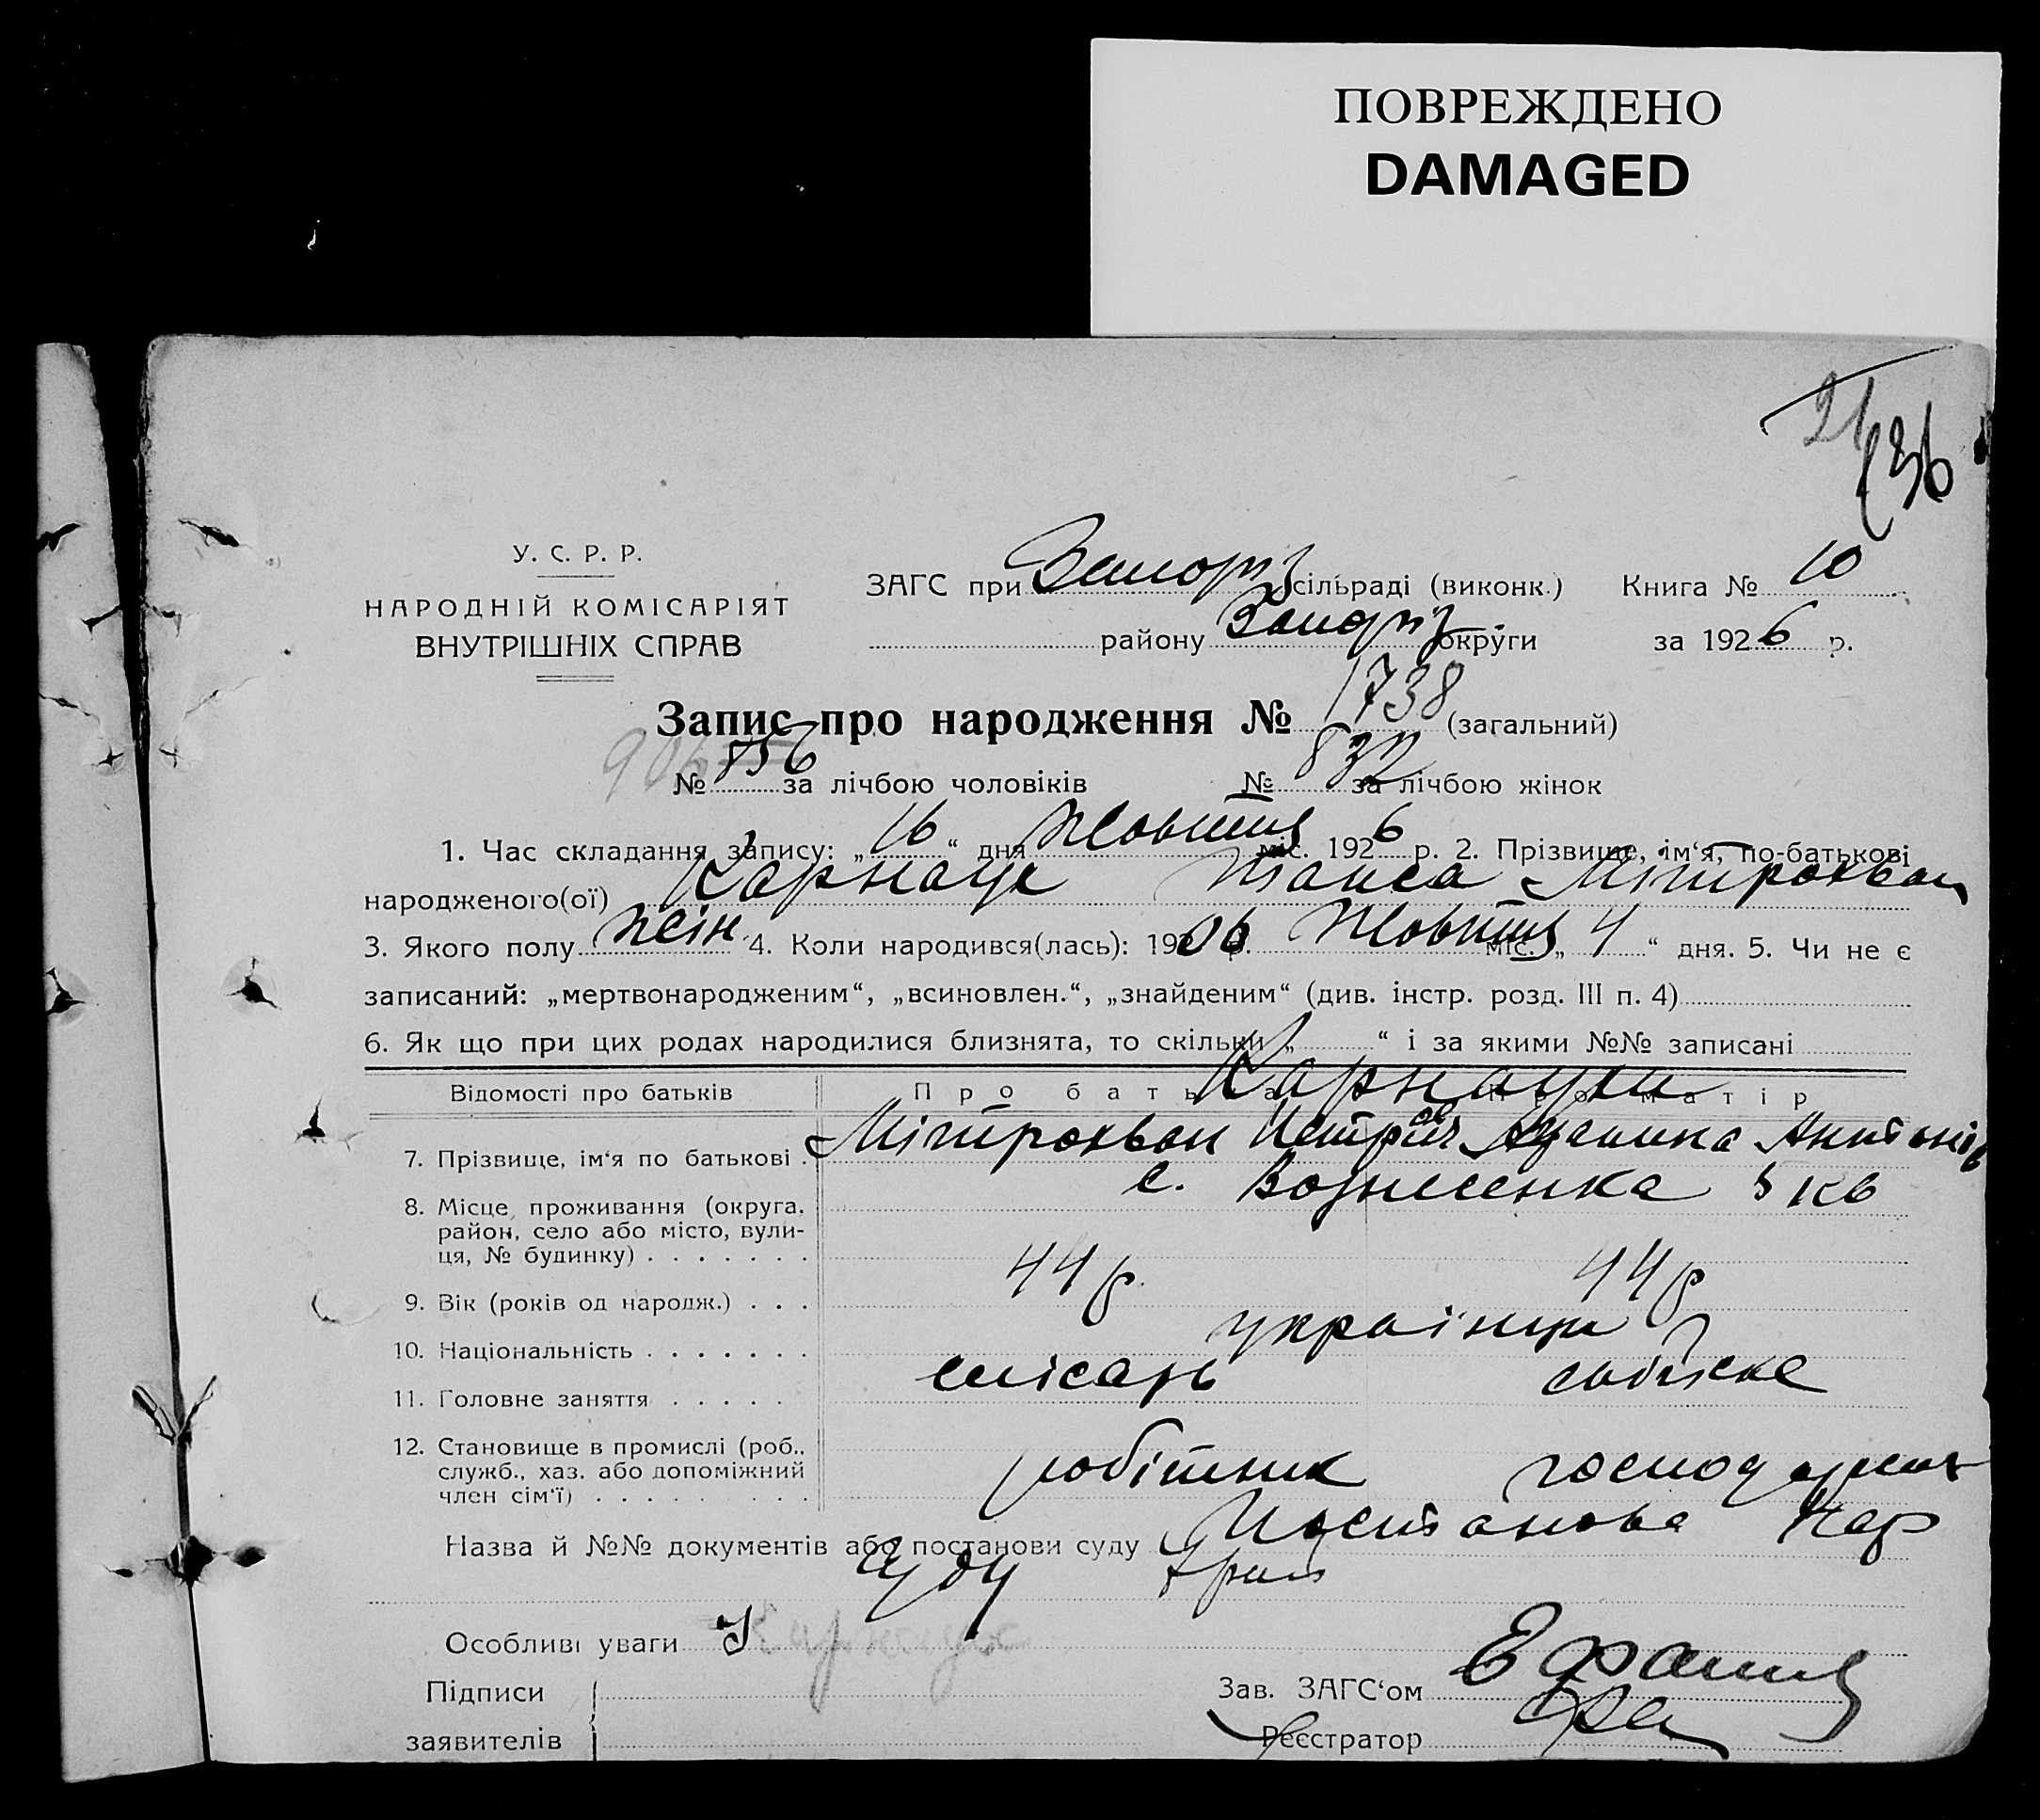 ПОВРЕЖДЕНО
DAMAGED
21
136
У. С. Р. Р.
НАРОДНІЙ КОМІСАРІЯТ
ВНУТРІШНІХ СПРАВ
ЗАГС при Запоріз сільраді (виконк.) Книга № 10
району Запоріз округи за 1926 р.
Запис про народження № 1738 (загальний)
906 № 856 за лічбою чоловіків № 832 за лічбою жінок
1. Час складання запису: „16“ дня Жовтня міс. 1926 р. 2. Прізвище, ім‘я, по-батькові
народженого(ої) Карнаух Таиса Мітрохван
3. Якого полу жін 4. Коли народився(лась): 1906 р. Жовтня міс. „4“ дня. 5. Чи не є
записаний: „мертвонародженим“, „всиновлен.“, „знайденим“ (див. інстр. розд. III п. 4)
6. Як що при цих родах народилися близнята, то скільки „ “ і за якими №№ записані
Відомості про батьків Про батька Про матір
Карнаухи
7. Прізвище, ім‘я по батькові . Мітрохван Петров Антонів
8. Місце проживання (округа, район, село або місто, вулиця, № будинку) . . . . . . . с. Вознесенка 5 кв
9. Вік (років од народж.) . . . 44 р. 44 р
10. Національність . . . . . . . українці
11. Головне заняття . . . . . слісарь
12. Становище в промислі (роб., служб., хаз. або допоміжний член сім‘ї) . . . . . . . . робітник
Назва й №№ документів або постанови суду Постанова Нар
Суду
Особливі уваги Карнаух
Підписи
заявителів
Зав. ЗАГС‘ом
Реєстратор